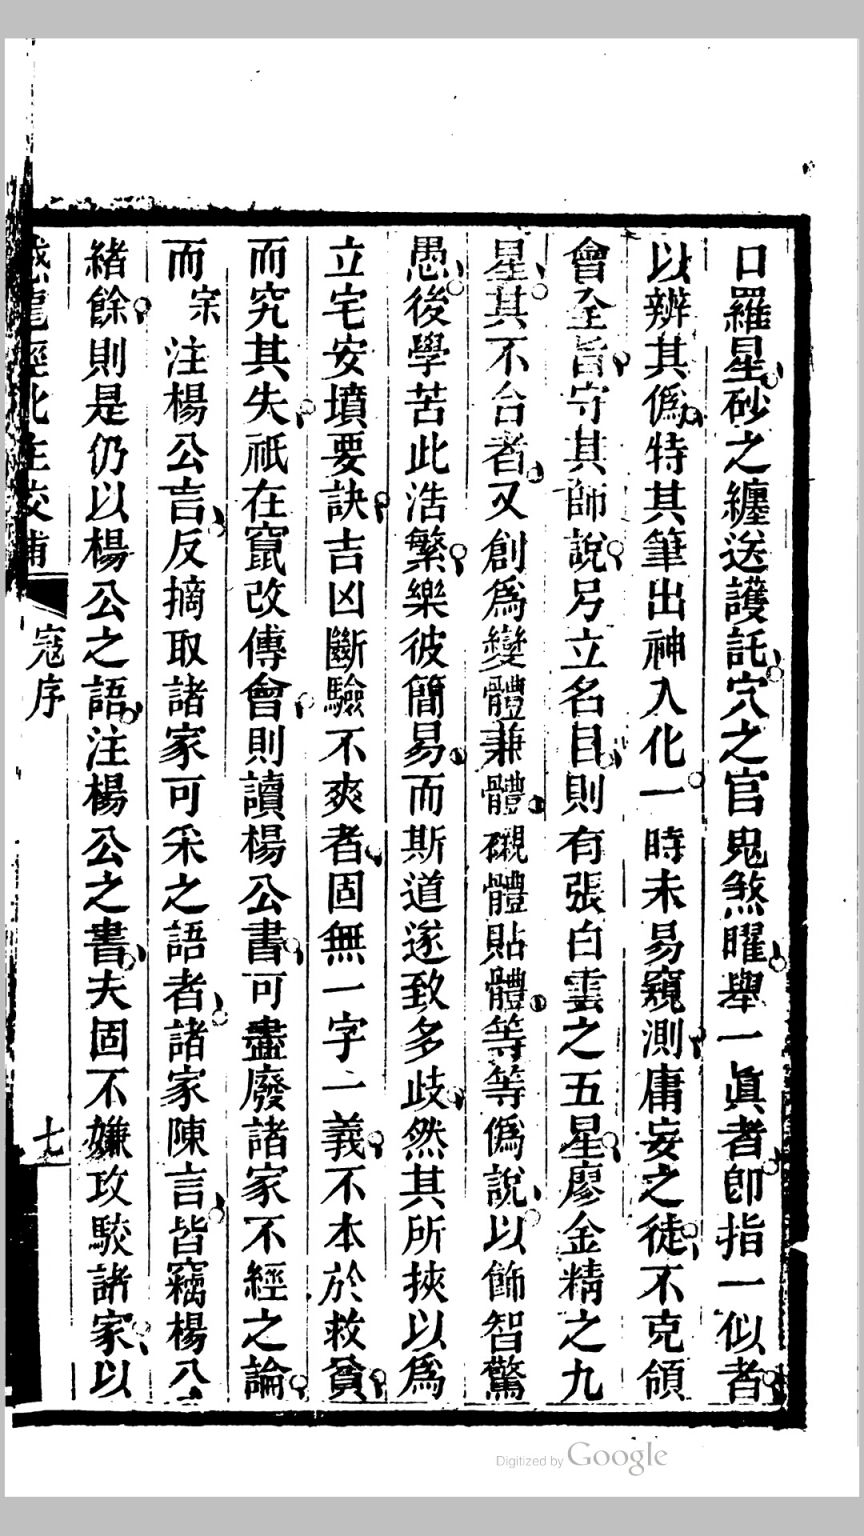 口羅星砂之纏送護託穴之官鬼煞曜舉一眞者卽指一似者
以辨其僞特其筆出神入化一時未易窺測庸妄之徒不克領
會全旨守其師說另立名目則有張白雲之五星廖金精之九
星其不合者又創爲變體兼體襯體貼體等等僞說以飾智驚
愚後學苦此浩繁樂彼簡易而斯道遂致多歧然其所挾以爲
立宅安墳要訣吉凶斷驗不爽者固無一字一義不本於救貧
而究其失祇在竄改傅會則讀楊公書可盡廢諸家不經之論
而宗注楊公言反摘取諸家可采之語者諸家陳言皆竊楊公
緒餘則是仍以楊公之語注楊公之書夫固不嫌攻駁諸家以
龍經 校補 寇序 七
Digitized by Google